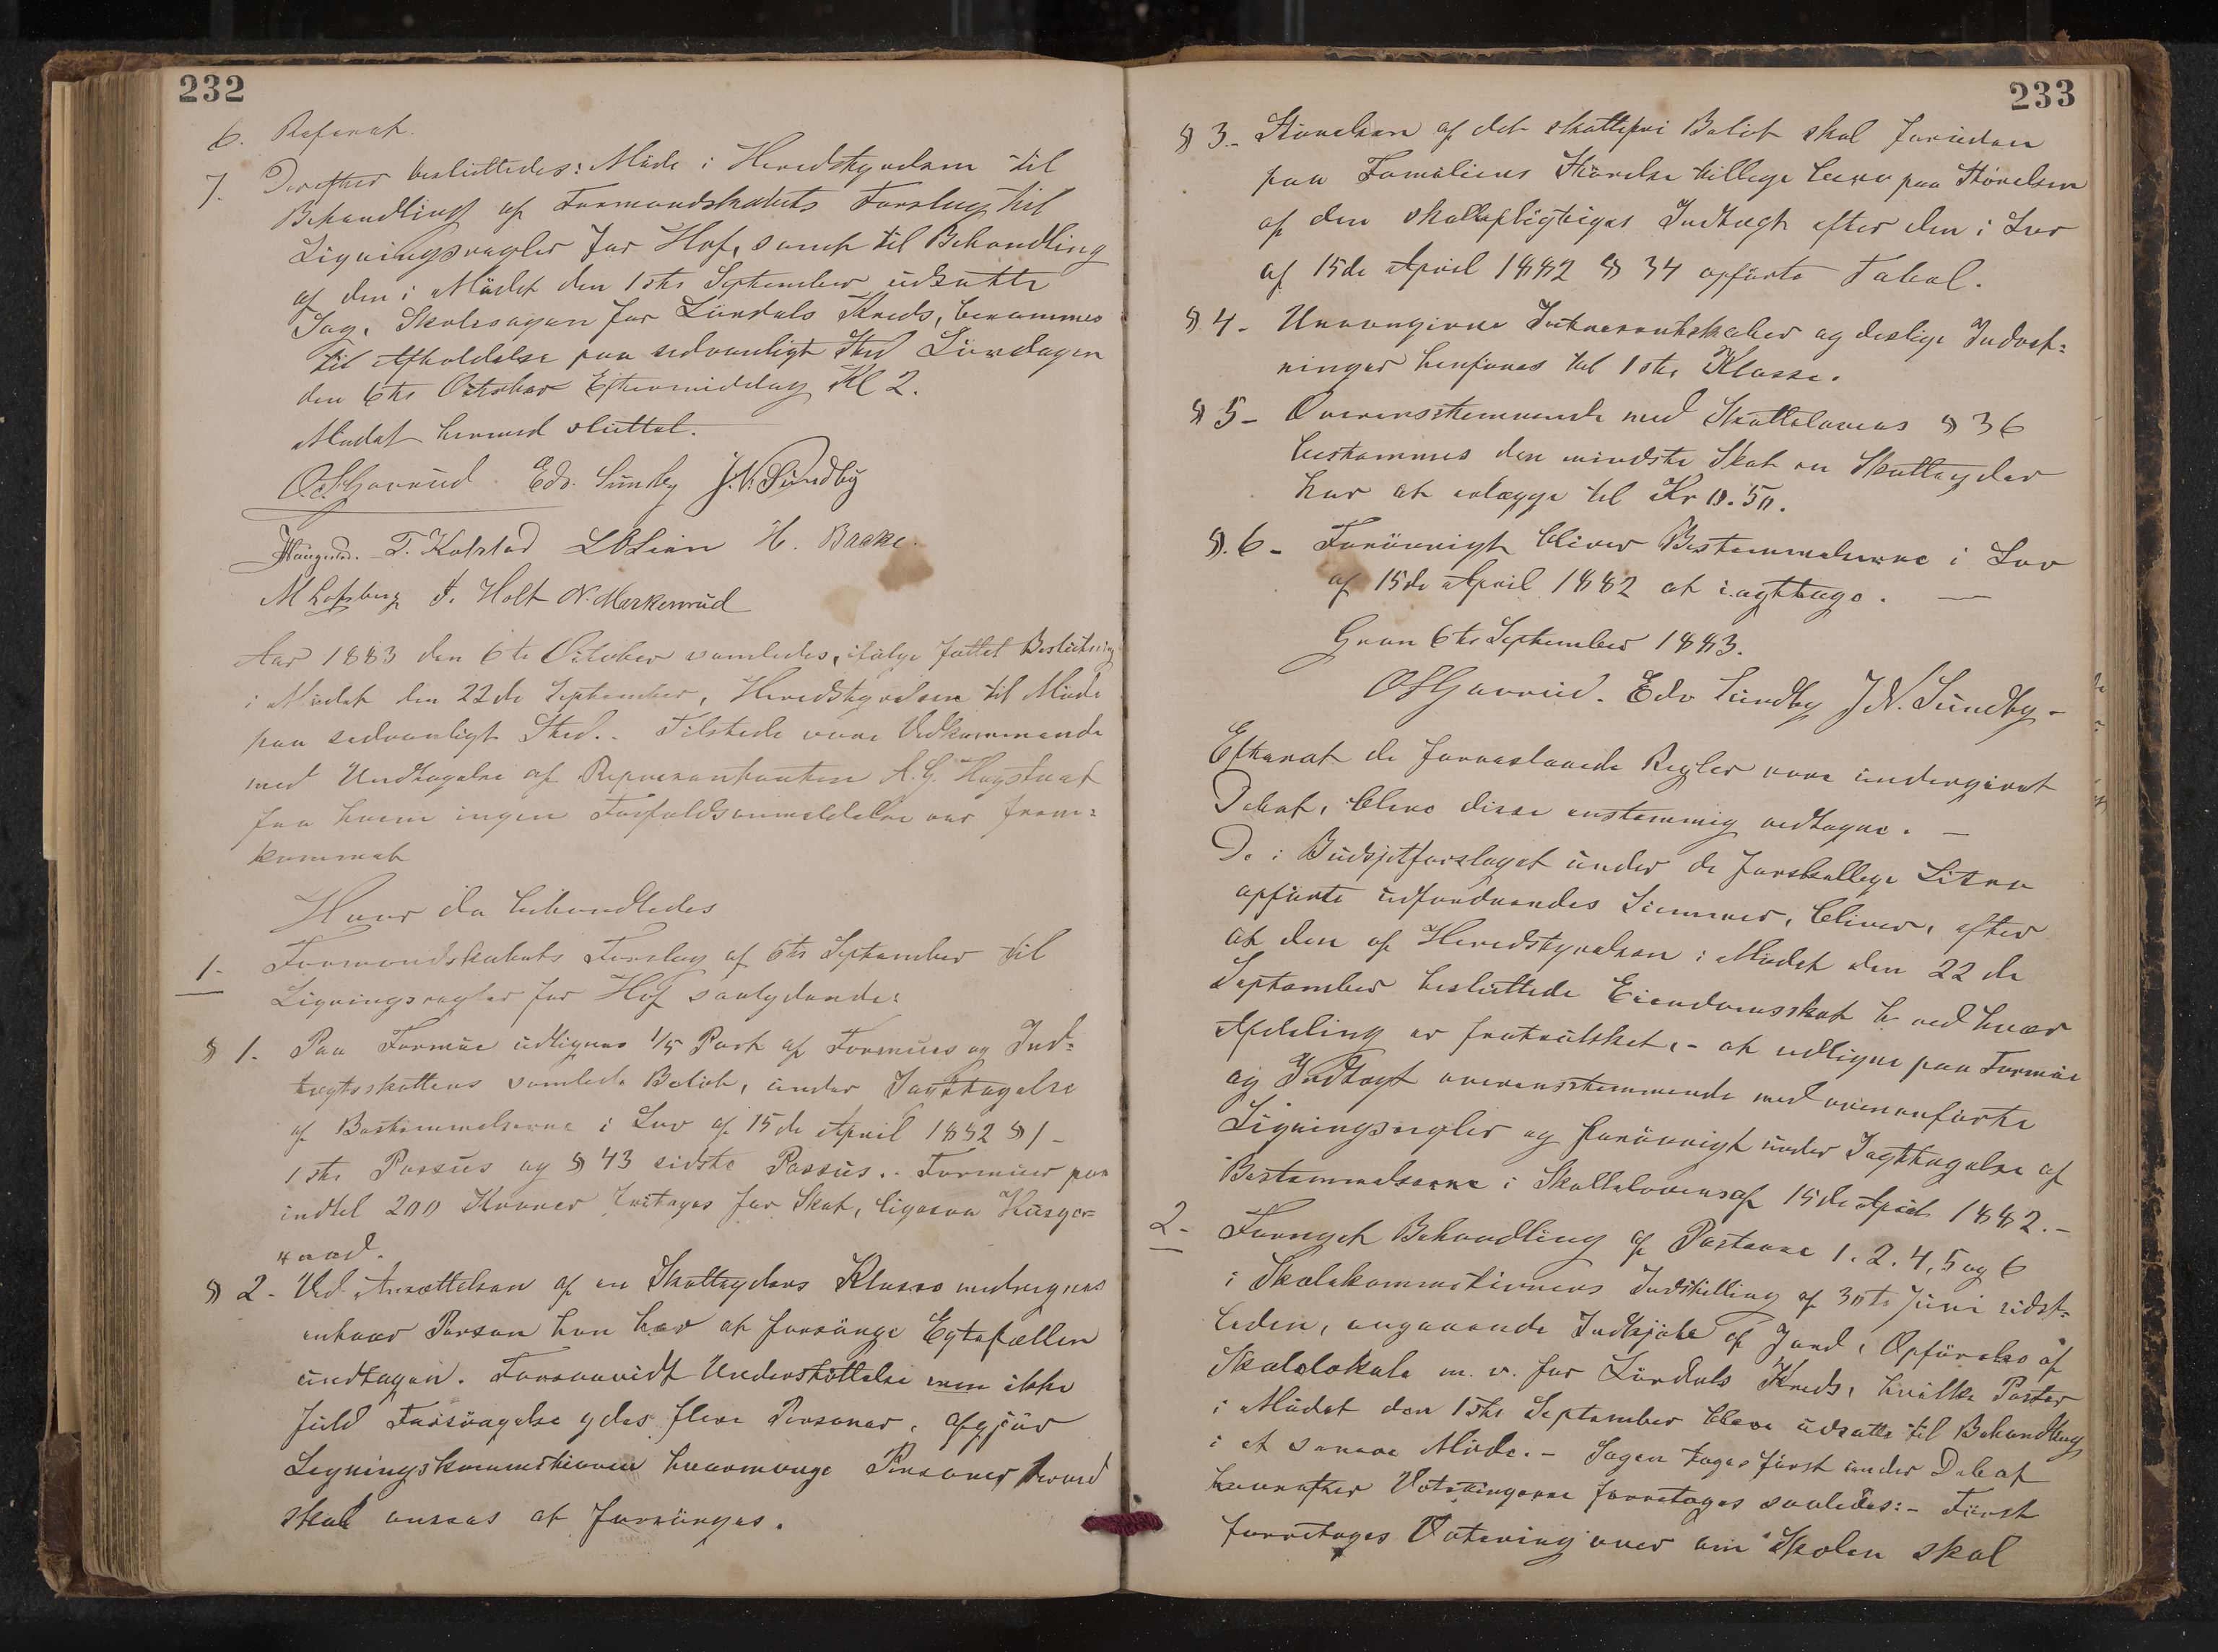 232
6. Referat.
7. Derefter besluttedes: Møde i Heredstyrelsen til
Behandling af Formandskabets Forslag til
Ligningsregler for Hof, samt til Behandling
af den i Mødet den 1ste September udsatte
Sag, Skolesagen for Lündals Kreds, berammes
til Afholdelse paa sedvanligt Sted Lørdagen
den 6te October Eftermiddag Kl 2.
Mødet hermed sluttet.
Edv. Sündby J. N. Sündby
T. Kolstad L O Lien H. Bakke.
J. Holt N. Morkenrud
Aar 1883 den 6te October samledes, ifølge fattet Beslutning
i Mødet den 22de September, Heredstyrelsen til Møde
paa sedvanligt Sted. - Tilstede vare Vedkommende
med Undtagelse af Repræsentanten A. G. Hagstuat
fra hvem ingen Forfaldsanmeldelse var frem=
kommet
Hvor da behandledes
1. Formandskabets Forslag af 6te September til
Ligningsregler for Hof saalydende:
§ 1. Paa Formue udlignes 1/5 Part af Formues og Ind=
tægtsskattens samlede Beløb, under Iagttagelse
af Bestemmelserne i Lov af 15de April 1882 § 1 -
1ste Passus og § 43 sidste Passus. - Formuer paa
indtil 200 Kroner fritages for Skat, ligesaa Husge=
raad.
§ 2. Ved Ansættelsen af en Skatteyders Klasse medregnes
enhver Person han har at forsørge Egtefællen
undtagen. Forsaavidt Understøttelse men ikke
fuld Forsørgelse ydes flere Personer, afgjør
Ligningskommissionen hvormange Personer derved
skal ansees at forsørges.
233
§ 3. - Størrelsen af det skattefri Beløb skal foruden
paa Familiens Størrelse tillige bero paa Størrelsen
af den skattepligtiges Indtægt efter den i Lov
af 15de April 1882 § 34 opførte Tabel.
§ 4 - Uopgivne Interessentskaber og deslige Indret=
ninger henføres til 1ste Klasse.
§ 5 - Overensstemmende med Skattelovens § 36
bestemmes den mindste Skat en Skatteyder
har at erlægge til Kr 0.50.
§. 6 - Forøvrigt bliver Bestemmelserne i Lov
af 15de April 1882 at iagttage. —
Gran 6te September 1883.
Edv Sündby J N. Sündby -
Efterat de foreslaaede Regler vare undergivet
Debat, bleve disse enstemmig vedtagne. —
De i Budsjetforslaget under de forskjellige Litra
opførte udfordrendes Summer, bliver, efter
at den af Heredstyrelsen i Mødet den 22de
September besluttede Eiendomsskat for hver
Afdeling er fratrukket, - at udligne paa Formue
og Indtægt overensstemmende med ovenanførte
Ligningsregler og forøvrigt under Iagttagelse af
Bestemmelserne i Skattelovens af 15de April 1882. -
2 - Fornyet Behandling af Posterne 1. 2. 4, 5 og 6
i Skolekommisionens Indstilling af 30te Juni sidst=
leden, angaaende Indkjøb af Jord, Opførelse af
Skolelokale m. v. for Lündals Kreds, hvilke Poster
i Mødet den 1ste September bleve udsatte til Behandling
i et senere Møde. - Sagen toges først under Debat
hvorefter Voteringerne foretoges saaledes: - Først
foretoges Votering over om Skolen skal